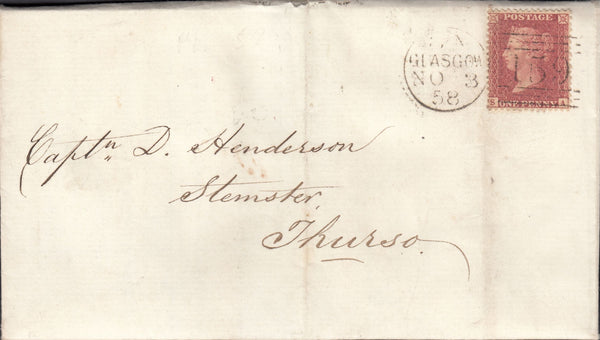 POSTAGE
GLASGOW
NO 3
58
159
S ONE PENNY A
Captn D. Henderson
Stemster,
Thurso